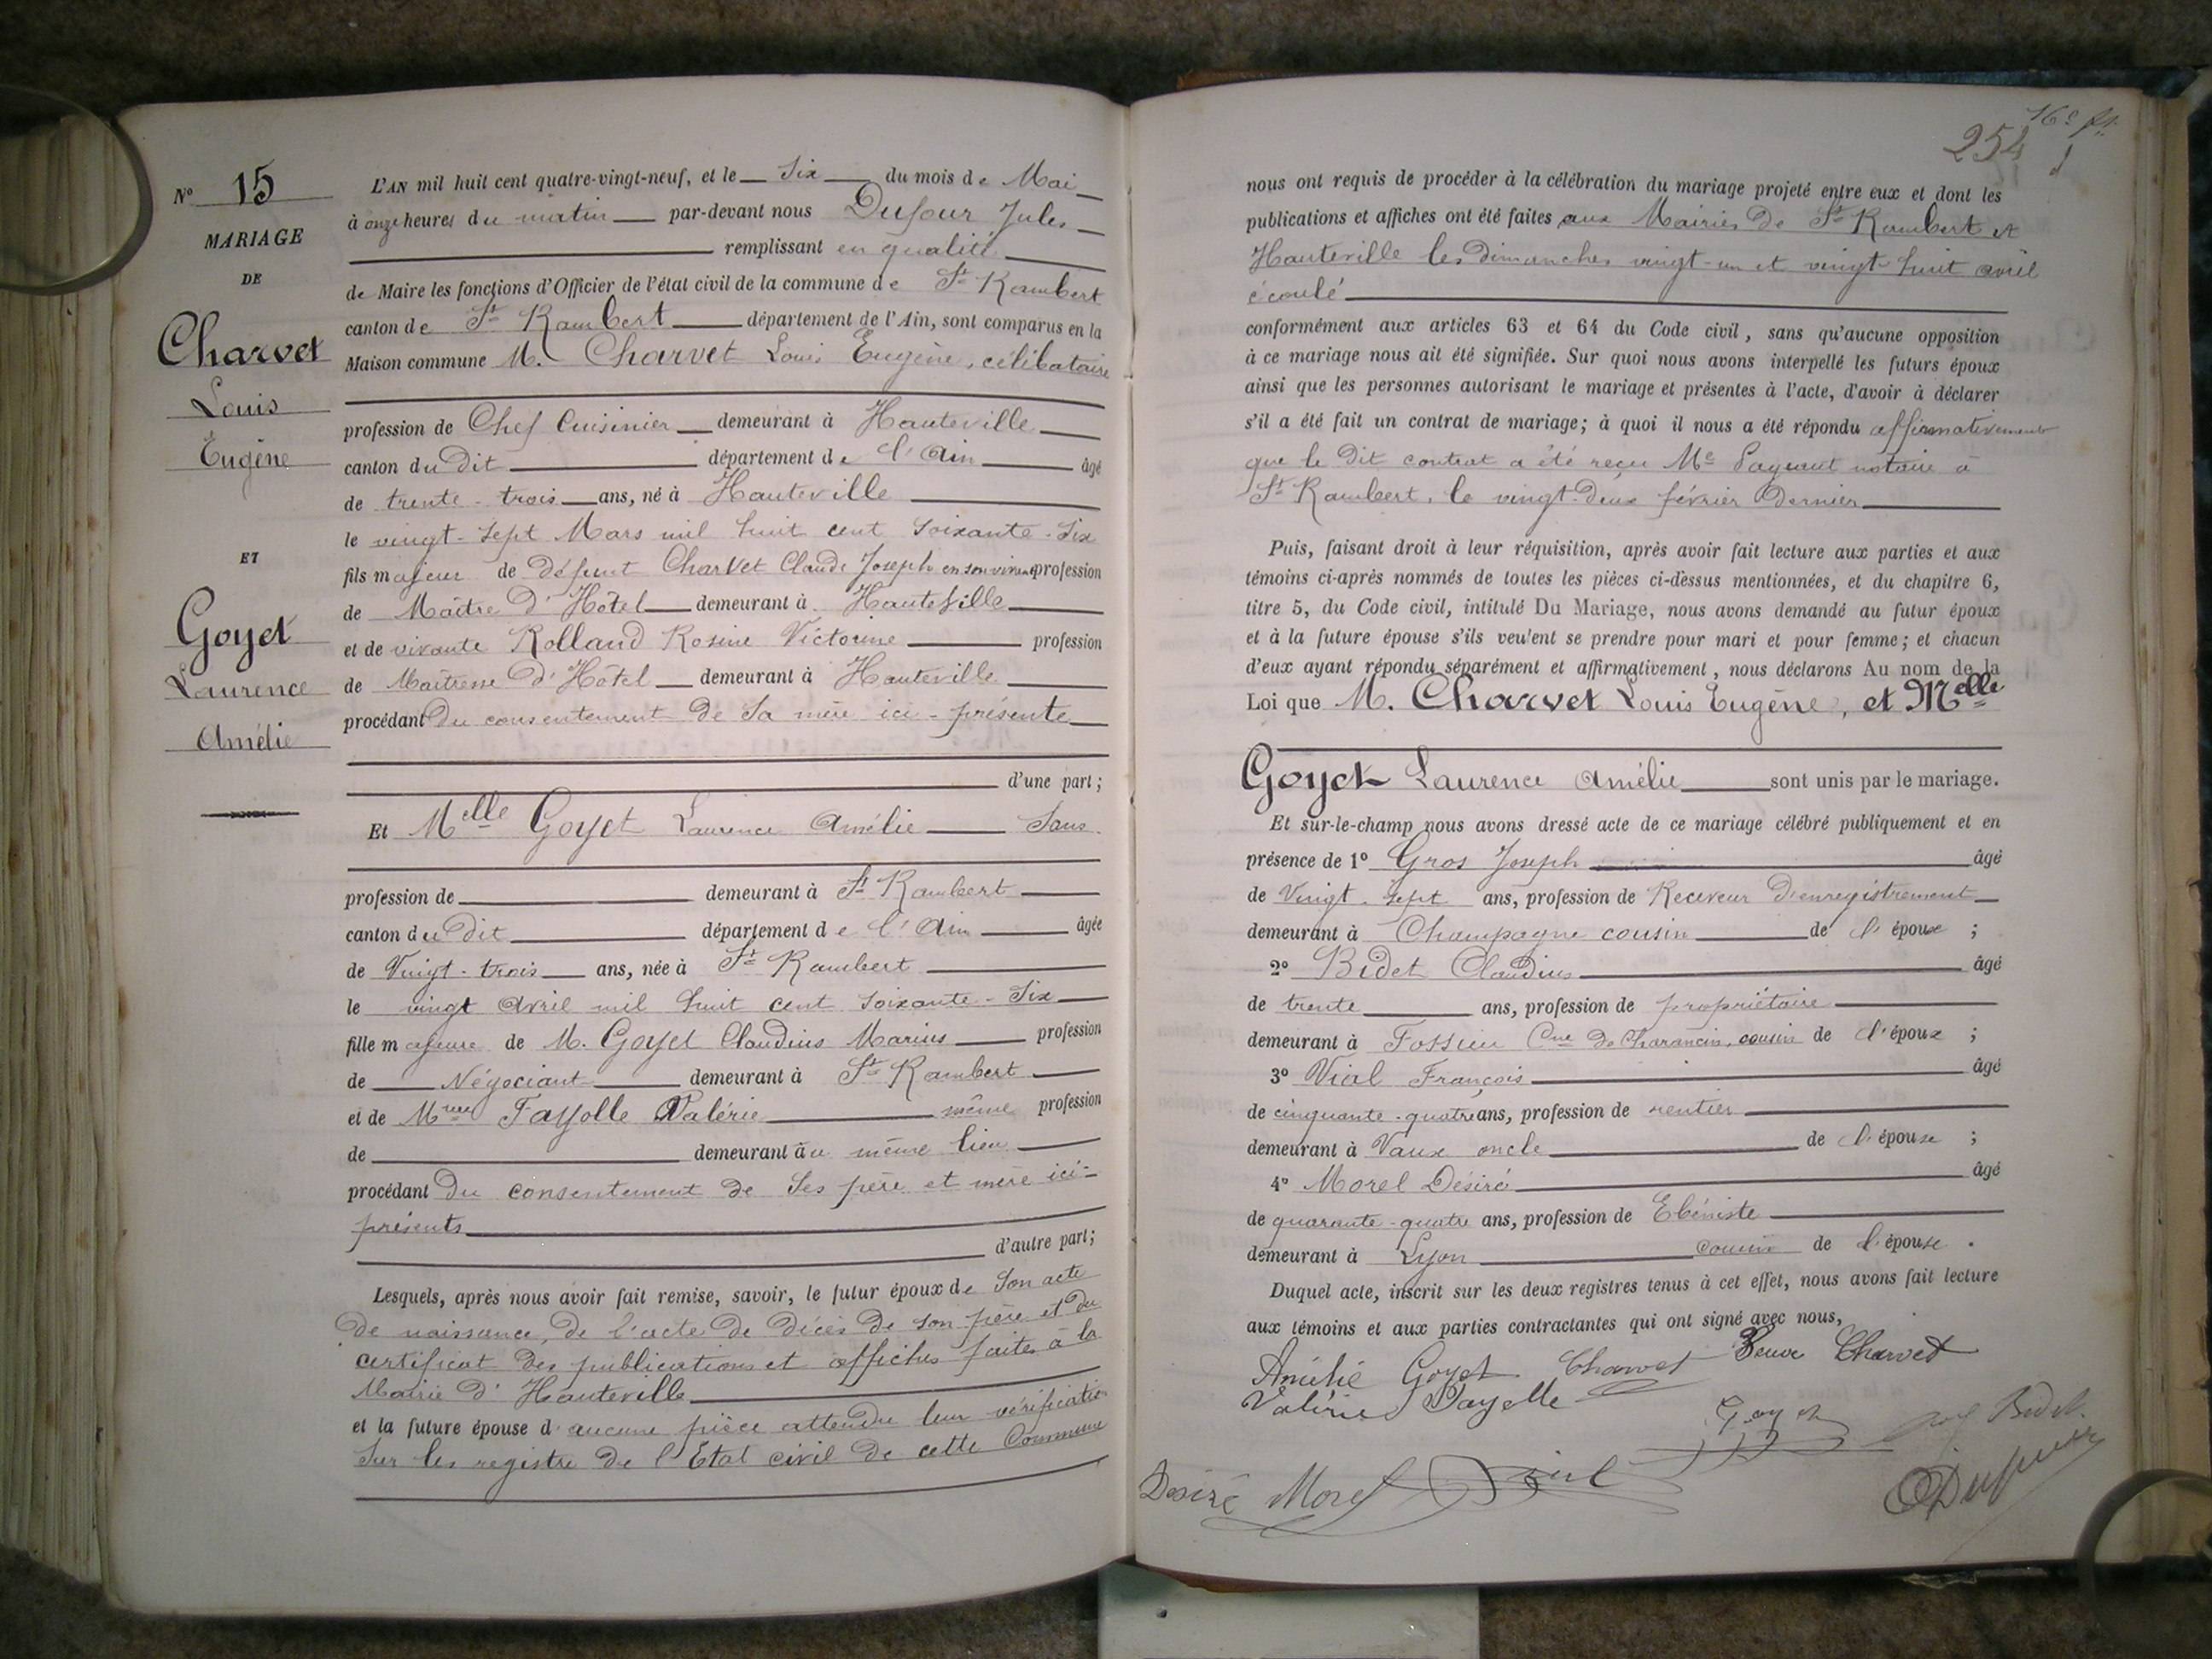 Nº 15
MARIAGE
DE
Charvet
Louis
Eugène
ET
Goyet
Laurence
Amélie
L'AN mil huit cent quatre-vingt-neuf, et le six du mois de Mai
à onze heures du matin par-devant nous Dufour Jules
remplissant en qualité
de Maire les fonctions d'Officier de l'état civil de la commune de St Rambert
canton de St Rambert département de l'Ain, sont comparus en la
Maison commune M. Charvet Louis Eugène, célibataire
profession de Chef Cuisinier demeurant à Hauteville
canton du dit département de l'Ain âgé
de trente-trois ans, né à Hauteville
le vingt-sept Mars mil huit cent soixante-six
fils majeur de défunt Charvet Claude Joseph en son vivant profession
de Maître d'Hôtel demeurant à Hauteville
et de vivante Rolland Rosine Victorine profession
de Maitresse d'Hôtel demeurant à Hauteville
procédant du consentement de sa mère ici-présente
d'une part;
Et Melle Goyet Laurence Amélie Sans
profession de demeurant à St Rambert
canton du dit département de l'Ain âgée
de Vingt-trois ans, née à St Rambert
le vingt Avril mil huit cent soixante-six
fille majeure de M. Goyet Claudius Marius profession
de Négociant demeurant à St Rambert
et de Mme Fayolle Valérie même profession
de demeurant au même lieu
procédant du consentement de ses père et mère ici-
présents
d'autre part;
Lesquels, après nous avoir fait remise, savoir, le futur époux de son acte
de naissance, de l'acte de décès de son père et du
certificat des publications et affiches faites à la
Mairie d'Hauteville
et la future épouse d'aucune pièce attendu leur vérification
sur les registre de l'Etat civil de cette Commune
254
nous ont requis de procéder à la célébration du mariage projeté entre eux et dont les
publications et affiches ont été faites aux Mairies de St Rambert et
Hauteville les dimanches vingt-un et vingt-huit avril
écoulé
conformément aux articles 63 et 64 du Code civil, sans qu'aucune opposition
à ce mariage nous ait été signifiée. Sur quoi nous avons interpellé les futurs époux
ainsi que les personnes autorisant le mariage et présentes à l'acte, d'avoir à déclarer
s'il a été fait un contrat de mariage; à quoi il nous a été répondu affirmativement
que le dit contrat a été reçu Me notaire à
St Rambert, le vingt-deux février dernier
Puis, faisant droit à leur réquisition, après avoir fait lecture aux parties et aux
témoins ci-après nommés de toutes les pièces ci-dessus mentionnées, et du chapitre 6,
titre 5, du Code civil, intitulé Du Mariage, nous avons demandé au futur époux
et à la future épouse s'ils veulent se prendre pour mari et pour femme; et chacun
d'eux ayant répondu séparément et affirmativement, nous déclarons Au nom de la
Loi que M. Charvet Louis Eugène, et Melle
Goyet Laurence Amélie sont unis par le mariage.
Et sur-le-champ nous avons dressé acte de ce mariage célébré publiquement et en
présence de 1º Gros Joseph âgé
de Vingt-sept ans, profession de Receveur d'enregistrement
demeurant à Champagne cousin de l'épouse ;
2º Bidet Claudius âgé
de trente ans, profession de propriétaire
demeurant à Fossieu Cne de Charancin, cousin de l'époux ;
3º Vial François âgé
de cinquante-quatre ans, profession de rentier
demeurant à Vaux oncle de l'épouse ;
4º Morel Désiré âgé
de quarante-quatre ans, profession de Ebéniste
demeurant à Lyon cousin de l'épouse.
Duquel acte, inscrit sur les deux registres tenus à cet effet, nous avons fait lecture
aux témoins et aux parties contractantes qui ont signé avec nous,
Amélie Goyet Charvet Veuve Charvet
Valérie Fayolle
Goyet Bidet
Désiré Morel Vial Dufour